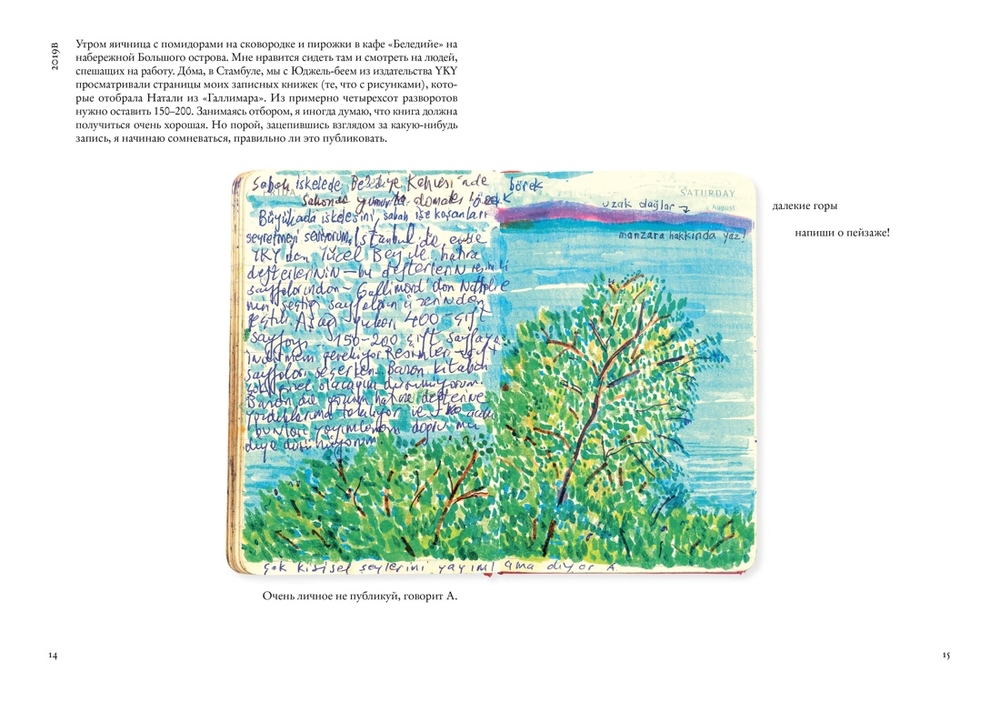 2019В
Утром яичница с помидорами на сковородке и пирожки в кафе «Беледийе» на
набережной Большого острова. Мне нравится сидеть там и смотреть на людей,
спешащих на работу. До́ма, в Стамбуле, мы с Юджель-беем из издательства YKY
просматривали страницы моих записных книжек (те, что с рисунками), кото-
рые отобрала Натали из «Галлимара». Из примерно четырехсот разворотов
нужно оставить 150–200. Занимаясь отбором, я иногда думаю, что книга должна
получиться очень хорошая. Но порой, зацепившись взглядом за какую-нибудь
запись, я начинаю сомневаться, правильно ли это публиковать.
Sabah iskelede Belediye Kahvesi'nde börek
Sahanda yumurta domates
Büyükada iskelesini, sabah işe koşanları
seyretmeyi seviyorum. İstanbul'da, evde
YKY'den Yücel Bey ile hatıra
defterlerinin – bu defterlerin resimli
sayfalarından – Gallimard'dan Natalie
nin seçtiği sayfaların üzerinden
geçtik. Aşağı yukarı 400 çift
sayfayı 150–200 çift sayfaya
indirmem gerekiyor. Resimleri
sayfaları seçerken Bazan kitabın
çok güzel olacağını düşünüyorum.
Bazan da gözüm hatıra defterine
yazdıklarıma takılıyor ve
bunları yayımlamam doğru mu
diye düşünüyorum.
SATURDAY
August
uzak dağlar
manzara hakkında yaz!
далекие горы
напиши о пейзаже!
çok kişisel şeylerini yayımlama diyor A.
Очень личное не публикуй, говорит А.
14
15